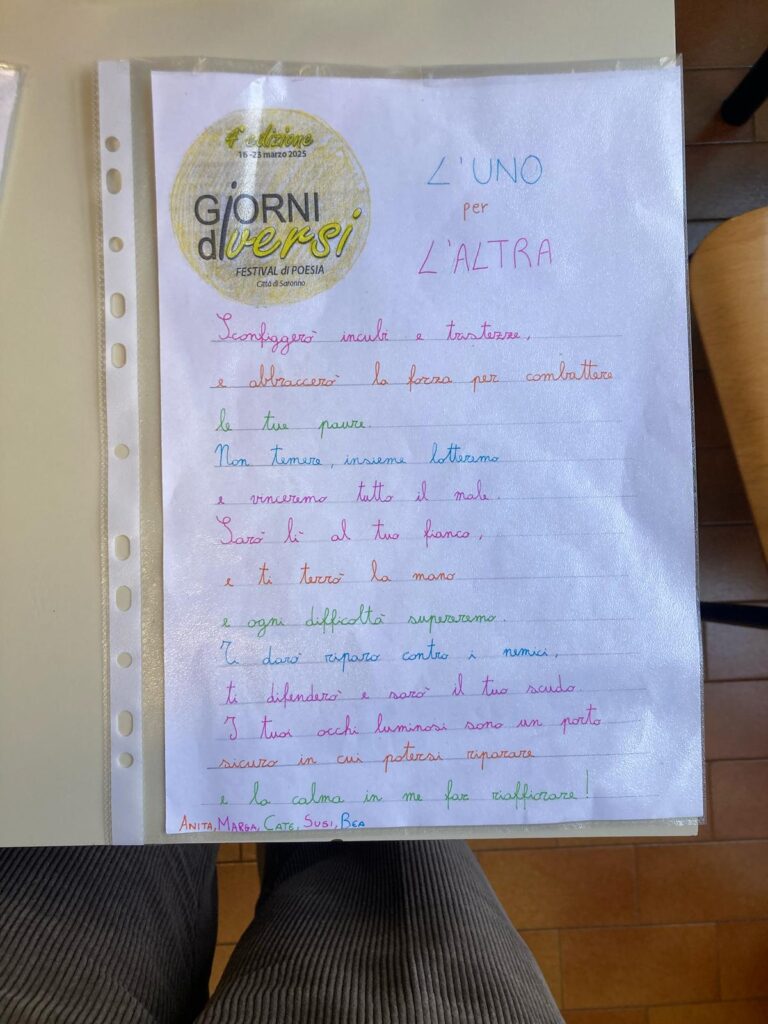 4ª edizione
16-23 marzo 2025
GiORNI
diversi
FESTIVAL di POESIA
Città di Saronno
L'UNO
per
L'ALTRA
Sconfiggerò incubi e trastezze,
e abbraccerò la forza per combattere
le tue paure.
Non temere, insieme lotteremo
e vinceremo tutto il male.
Sarò lì al tuo fianco,
e ti terrò la mano
e ogni difficoltà supereremo.
Ti darò riparo contro i nemici,
ti difenderò e sarò il tuo scudo.
I tuoi occhi luminosi sono un porto
sicuro in cui potersi riparare
e la calma in me far riaffiorare!
ANITA, MARGA, CATE, SUSI, BEA